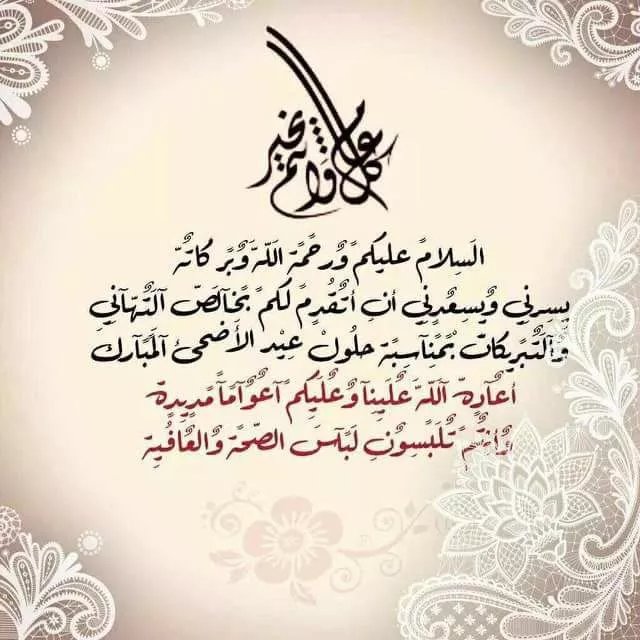 كل عام وأنتم بخير
السلام عليكم ورحمة الله وبركاته
يسرني ويسعدني أن أتقدم لكم بخالص التهاني
والتبريكات بمناسبة حلول عيد الأضحى المبارك
أعاده الله علينا وعليكم أعواماً مديدة
وأنتم تلبسون لباس الصحة والعافية